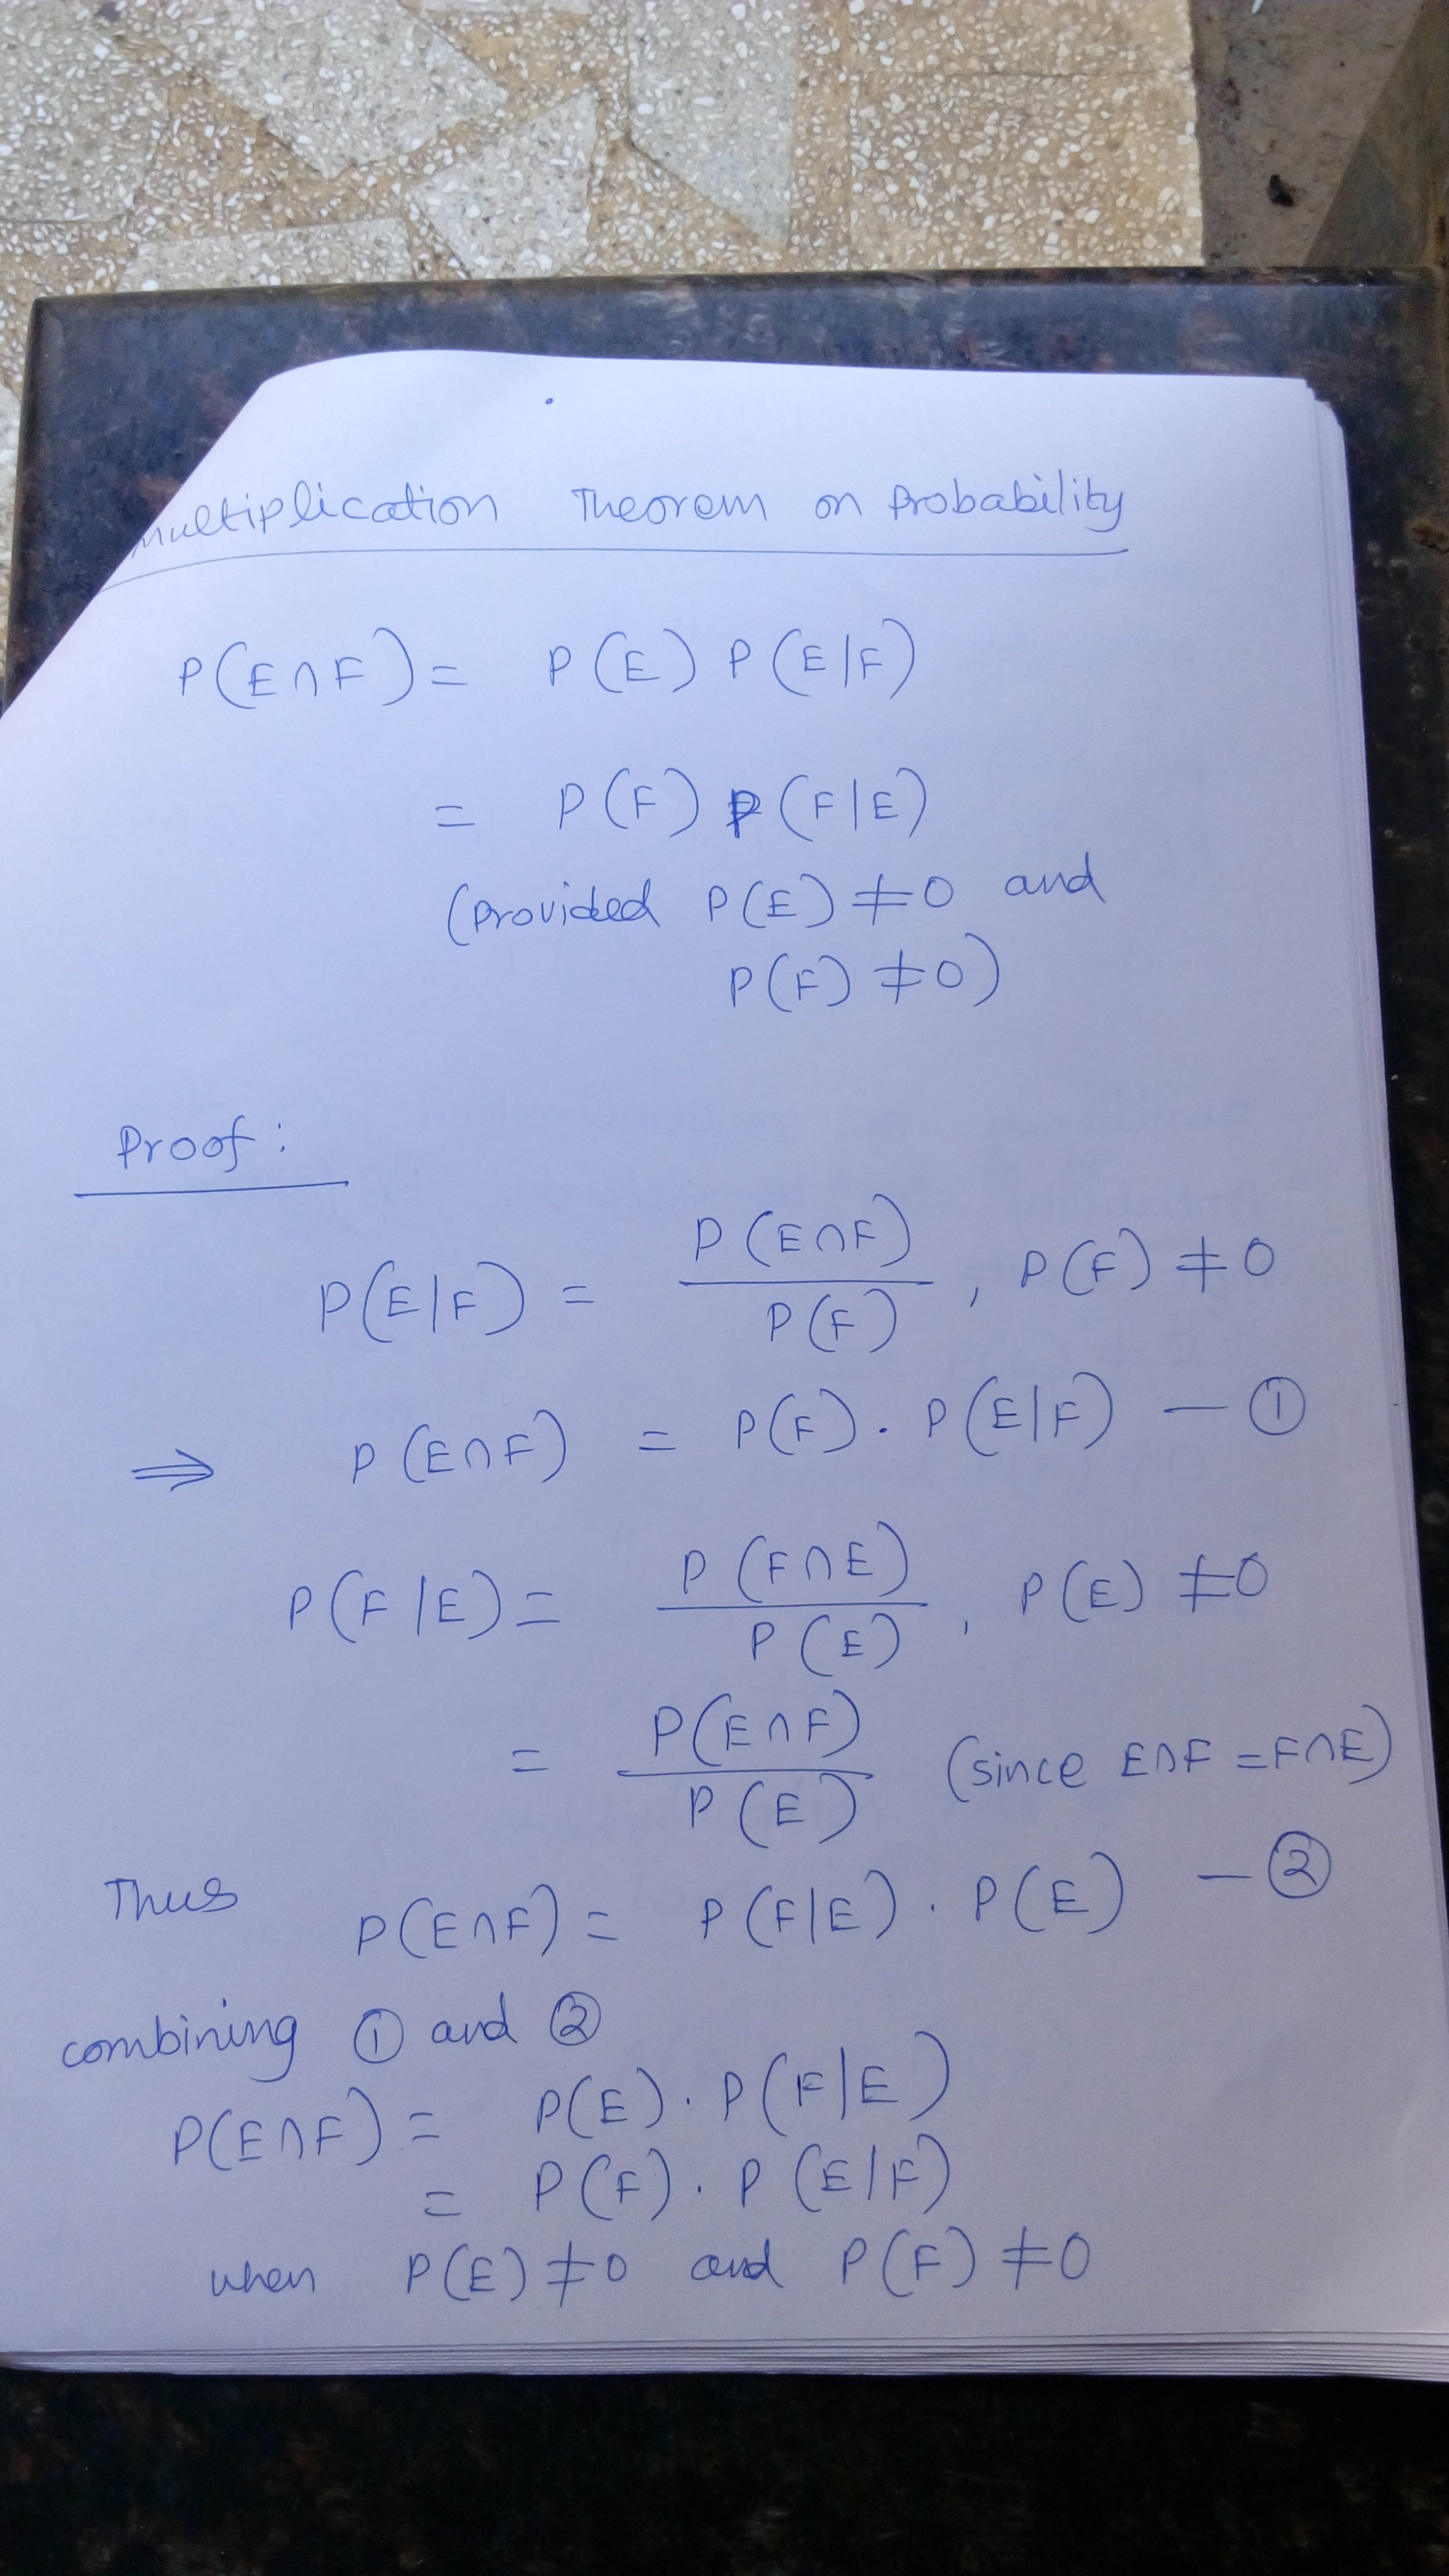 Multiplication Theorem on Probability
P(E∩F) = P(E) P(E|F)
= P(F) P(F|E)
(provided P(E) ≠ 0 and
P(F) ≠ 0)
Proof:
P(E|F) = P(E∩F) / P(F) , P(F) ≠ 0
⇒ P(E∩F) = P(F) . P(E|F) — ①
P(F|E) = P(F∩E) / P(E) , P(E) ≠ 0
= P(E∩F) / P(E) (since E∩F = F∩E)
Thus P(E∩F) = P(F|E) . P(E) — ②
combining ① and ②
P(E∩F) = P(E) . P(F|E)
= P(F) . P(E|F)
when P(E) ≠ 0 and P(F) ≠ 0